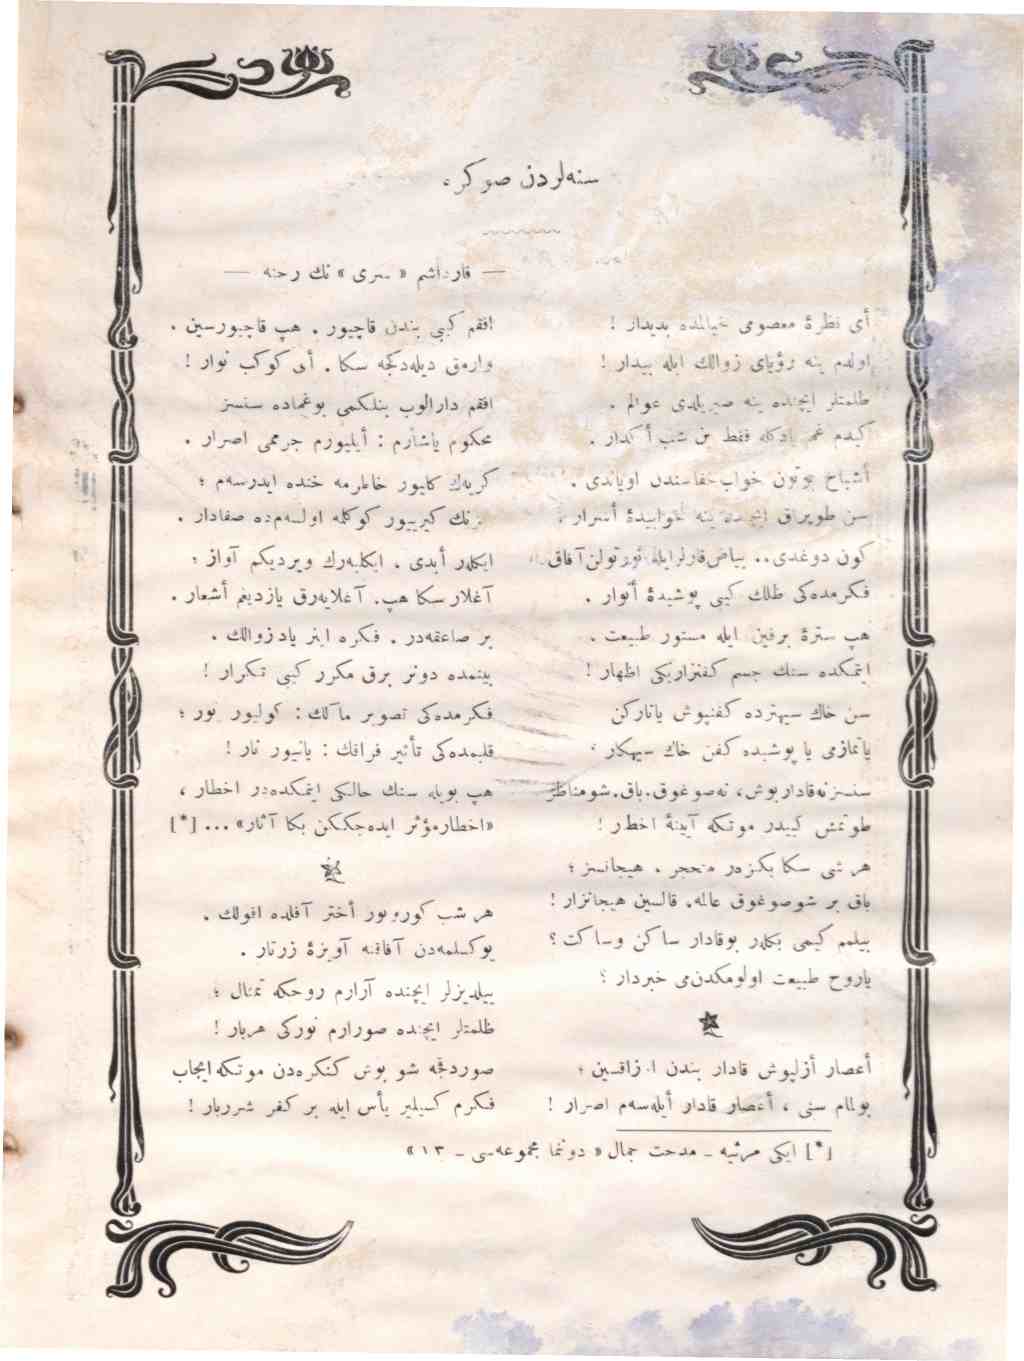 سنه‌لردن صوكره
— قارداشم « سری » نك روحنه —
أی نظرۀ معصومی خیالمده بدیدار !
اولدم ینه رؤیای زوالك ایله بیدار !
ظلمتلر ایچنده ینه صیریلدی عوالم .
كیدم غم یادكله فقط بن شب أكدار .
أشباح بوتون خواب خفاسندن اویاندی .
سن طوپراق ایچنده ینه خوابیدۀ أسرار .
كون دوغدی.. بیاض قارلر ایله نورتولن آفاق
فكرمده‌كی ظلك كبی پوشیدۀ أنوار .
هپ سترۀ برفین ایله مستور طبیعت .
ایتمكده سنك جسم كفنزاریكی اظهار !
سن خاك سیهترده كفنپوش یاتاركن
یاتمازمی یا پوشیده كفن خاك سیهكار ؟
سنسز نه قادار بوش، نه صوغوق. باق. شو مناظر
طوتمش كبیدر موتكه آیینۀ اخطار !
هر شی سكا بكزه‌ر متحجر . هیجانسز ؛
باق بر شو صوغوق عالمه. قالسین هیجانزار !
بیلمم كیمی بكلر بوقادار ساكن وساكت ؟
یاروح طبیعت اولومكدن‌می خبردار ؟
أعصار أزلپوش قادار بندن اوزاقسین ؛
بولمام سنی ، أعصار قادار أیله‌سه‌م اصرار !
افقم كبی بندن قاچیور . هپ قاچیورسین .
وارمق دیله‌دكجه سكا . أی كوكب نوار !
افقم دارالوب بنلكمی بوغماده سنسز
محكوم یاشارم : أیلیورم جرممی اصرار .
كریه‌ك كلیور خاطرمه خنده ایدرسه‌م ؛
مرنك كیرییور كوكلمه اولسه‌مده صفادار .
ایكلر أبدی . ایكلیه‌رك ویردیكم آواز ؛
آغلار سكا هپ. آغلایه‌رق یازدیغم أشعار .
بر صاعقه‌در . فكره اینر یاد زوالك .
بینمده دونر برق مكرر كبی تكرار !
فكرمده‌كی تصویر مآلك : كولیور نور ؛
قلبمده‌كی تأثیر فراقك : یانیور نار !
هپ بویله سنك حالكی ایتمكده‌در اخطار ،
«اخطار مؤثر ایده‌جككن بكا آثار» ... [*]
هر شب كورونور أختر آفلده افولك .
یوكسلمه‌دن آفاقنه آویزۀ زرتار .
ییلدیزلر ایچنده آرارم روحكه تمثال ؛
ظلمتلر ایچنده صورارم نوركی هربار !
صوردقجه شو بوش كنكره‌دن موتكه ایجاب
فكرم كسیلیر یأس ایله بر كفر شرربار !
[*] ایكی مرثیه ـ مدحت جمال « دونما مجموعه‌سی ـ ١٣ »